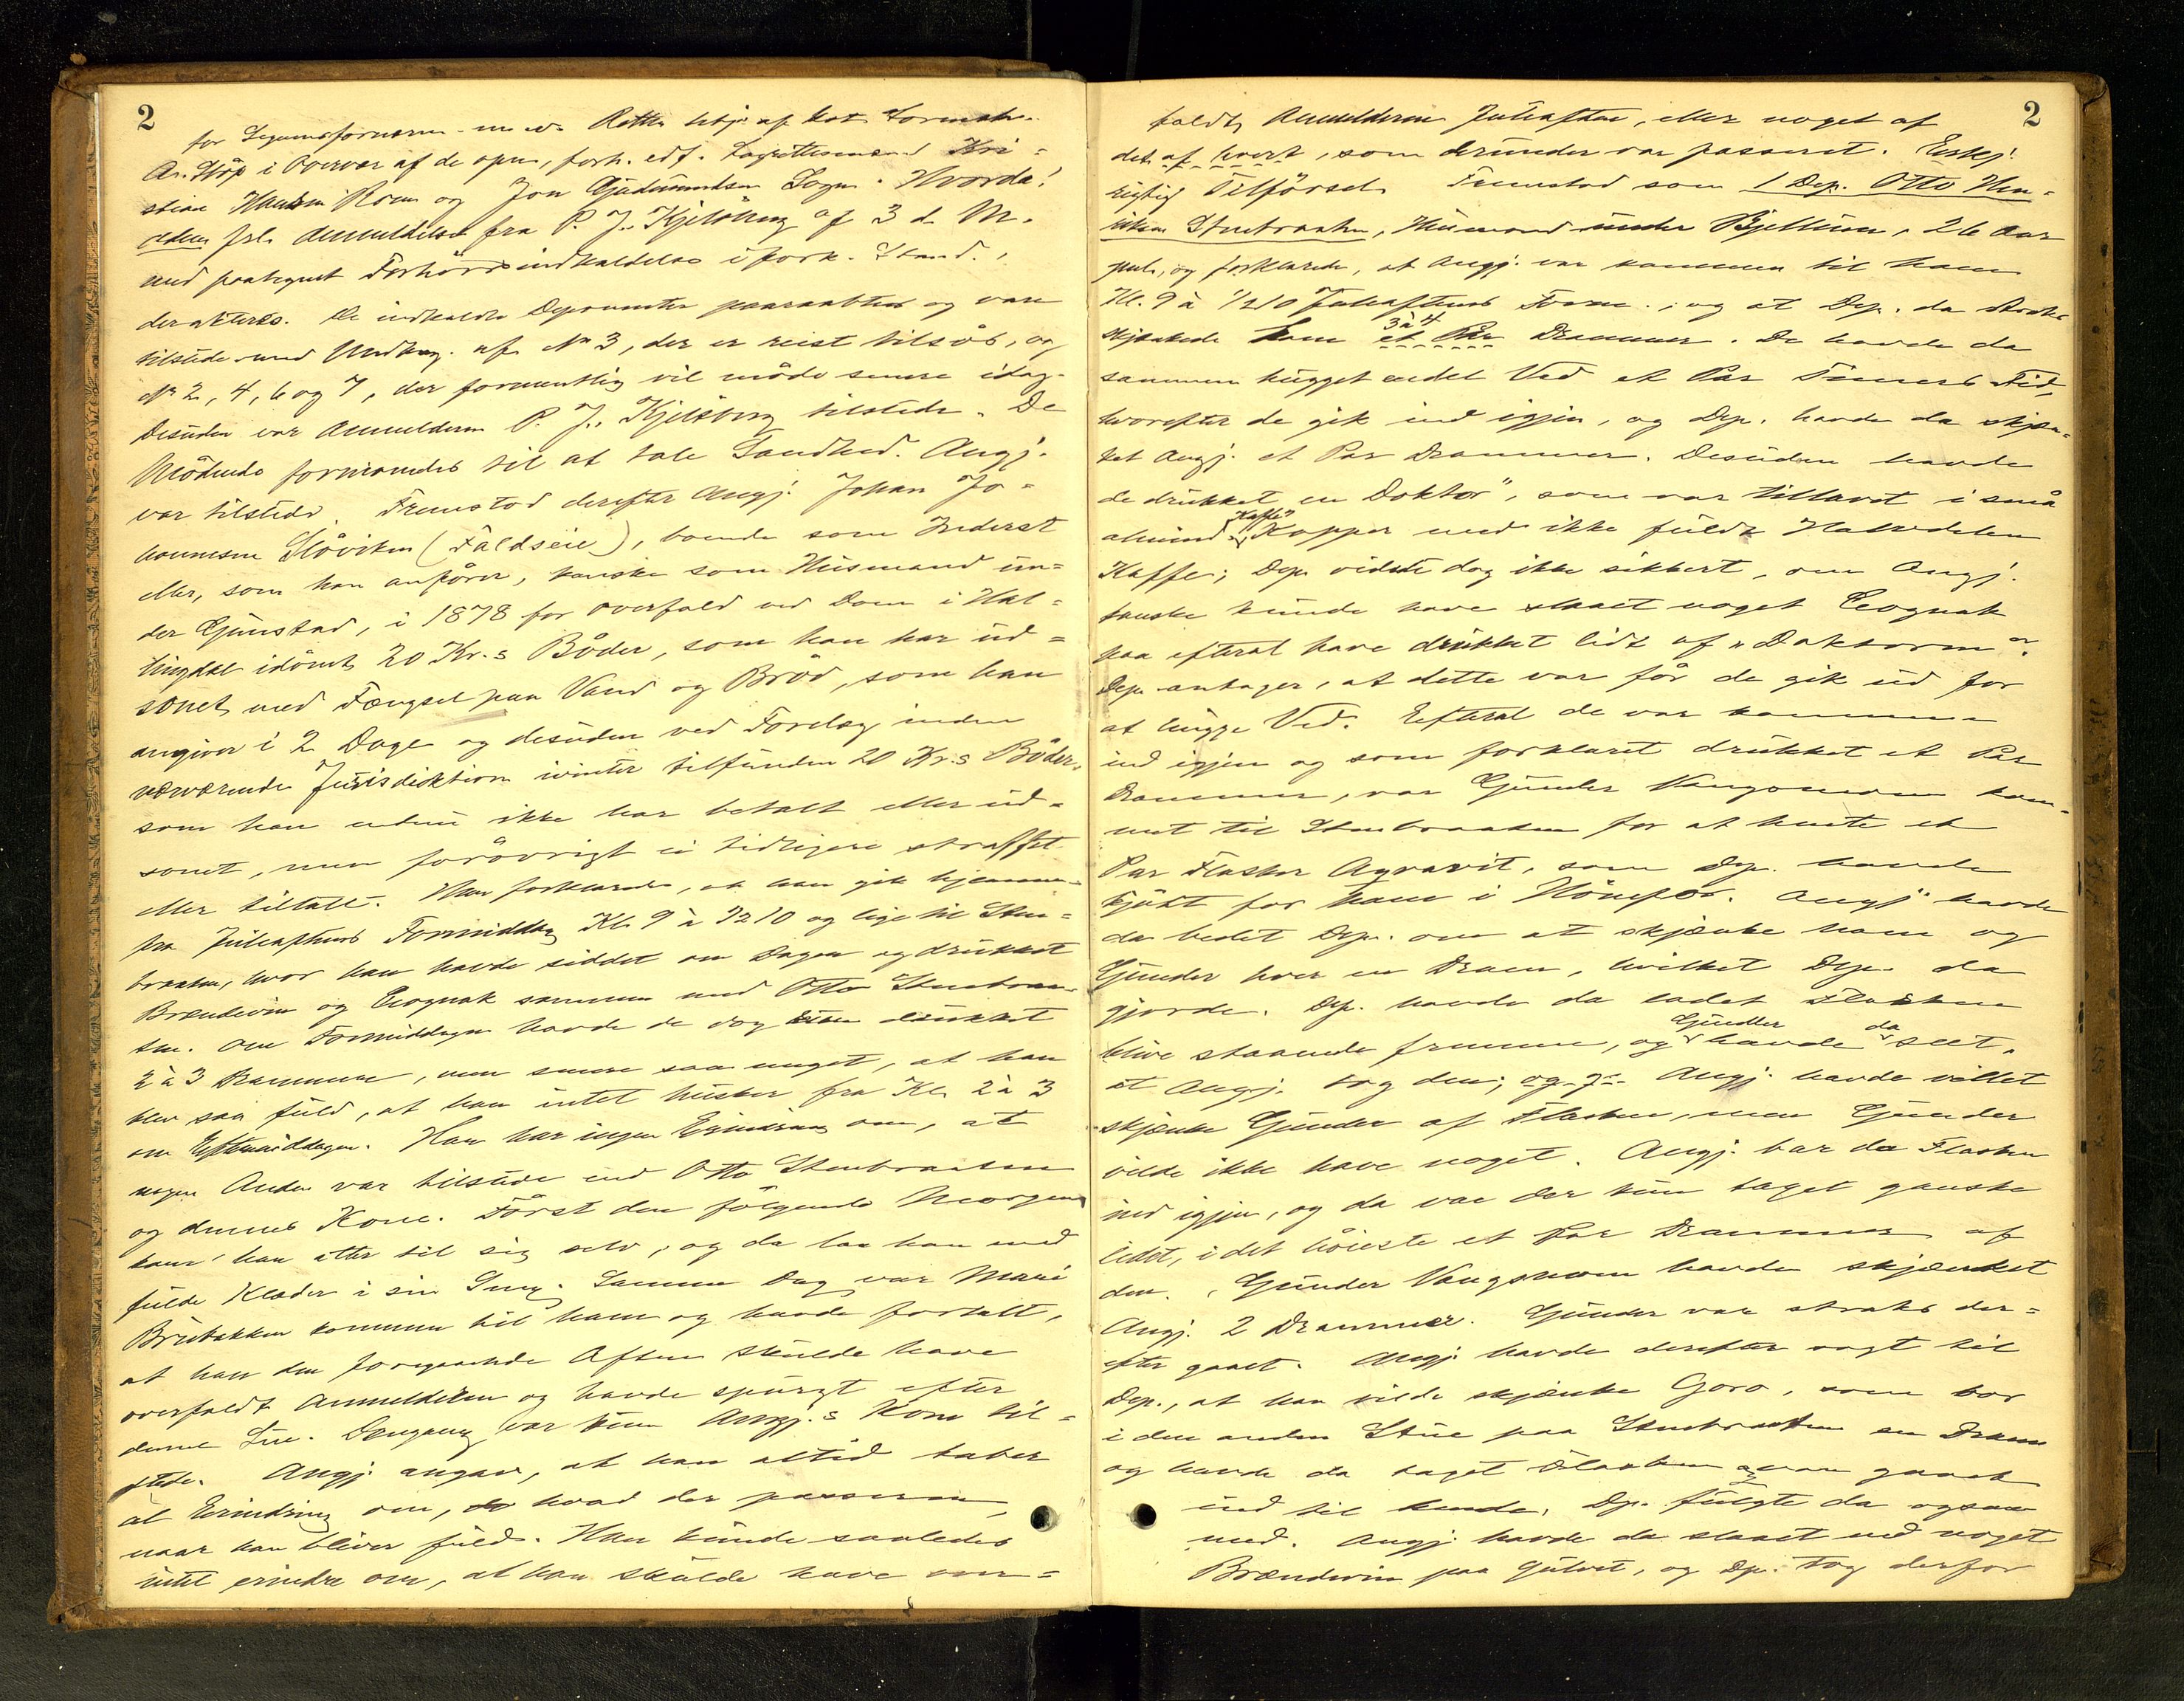 2
for Sogne Retten betj. af const. Sorensk.
Ar. Höp i Overvær af de opn., forh. edf. Lagrettesmænd Kri-
stian Hansen Roum og Jon Gudmundsen Sogn. Hvorda!
Anmeldelse fra P. J. Kjelsberg af 3 d. M.
med paategnet Forhörsindkaldelse i fork. Stand.,
der akteres. De indkaldte Deponenter paaraabtes og vare
tilstede med Undtag. af No 3, der er reist tilsös, og
No 2, 4, 6 og 7, der formentlig vil möde senere idag.
Desuden var Anmelderen P. J. Kjelsberg tilstede. De
Mödende formanedes til at tale Sandhed. Angj.
var tilstede. Fremstod derefter Angj. Johan Jo-
hannesen Slåviken (Faldseie), boende som Inderst
eller, som han anförer, kanske som Huusmand un-
der Gunstad, i 1878 for Overfald ved Dom i Hal-
lingdal idömt 20 Kr.s Böder, som han har ud-
sonet med Fængsel paa Vand og Bröd, som han
angiver i 2 Dage og desuden ved Forelæg inden
nærværende Jurisdiktion ivinter tilfunden 20 Kr.s Böder,
som han endnu ikke har betalt eller ud-
sonet, men forövrigt ei tidligere straffet
eller tiltalt. Han forklarede, at han gik hjemme-
fra Juleaftens Formiddag Kl. 9 à 1/2 10 og lige til Sten-
braaten, hvor han havde siddet om Dagen og drukket
Brændevin og Cognak sammen med Otto Stenbraa-
ten. Om Formiddagen havde de dog drukket
2 à 3 Drammer, men senere saa meget, at han
blev saa fuld, at han intet husker fra Kl. 2 à 3
om Eftermiddagen. Han har ingen Erindring om, at
nogen Anden var tilstede end Otto Stenbraaten
og dennes Kone. Först den fölgende Morgen
kom han atter til sig selv, og da laa han med
fulde Klæder i sin Seng. Samme Dag var Mari
Brubakken kommen til ham og havde fortalt,
at han den foregaaende Aften skulde have
overfaldt Anmelderen og havde spurgt efter
denne. Dengang var kun Angj.s Kone til-
stede. Angj. angav, at han altid taber
al Erindring om, hvad der passerer,
naar han bliver fuld. Han kunde saaledes
intet erindre om, at han skulde have over-
2
faldt Anmelderen Juleaften, eller noget af
det af hvert, som derunder var passeret. Erkj.
rigtig Tilförsel. Fremstod som 1 Dep. Otto Hen-
riksen Stenbraaten, Huusmand under Bjellum, 26 Aar
gml., og forklarede, at Angj. var kommen til ham
Kl. 9 à 1/2 10 Juleaftens Form., og at Dep. da straks
skjænkede ham et Par 3 à 4 Drammer. De havde da
sammen hugget endel Ved et Par Timers Tid,
hvorefter de gik ind igjen, og Dep. havde da skjæn-
ket Angj. et Par Drammer. Desuden havde
de drukket en "Doktor", som var tillavet i små
almind. "Kaffe" Kopper med ikke fuldt Halvdelen
Kaffe; Dep. vidste dog ikke sikkert, om Angj.
kanske kunde have slaaet noget Cognak
paa efterat have drukket lidt af "Doktoren".
Dep. antager, at dette var för de gik ud for
at hugge Ved. Efterat de var kommen
ind igjen og som forklaret drukket et Par
Drammer, var Gunder Vangsmoen kom-
met til Stenbraaten for at hente et
Par Flasker Aqvavit, som Dep. havde
kjöbt for ham i Hönefos. Angj. havde
da bedet Dep. om at skjænke ham og
Gunder hver en Dram, hvilket Dep. da
gjorde. Dep. havde da ladet Flasken
blive staaende fremme, og Gunder havde da seet,
at Angj. tog den; Angj. havde villet
skjænke Gunder af Flasken, men Gunder
vilde ikke have noget. Angj. bar da Flasken
ind igjen, og da var der kun taget ganske
lidet, i det höieste et Par Drammer af
den. Gunder Vangsmoen havde skjænket
Angj. 2 Drammer. Gunder var straks der-
efter gaaet. Angj. havde derefter sagt til
Dep., at han vilde skjænke Goro, som bor
i den anden Stue paa Stenbraaten en Dram
og havde da taget Flasken og var gaaet
ind til hende. Dep. fulgte da ogsaa
med. Angj. havde da slaaet ned noget
Brændevin paa Gulvet, og Dep. tog derfor